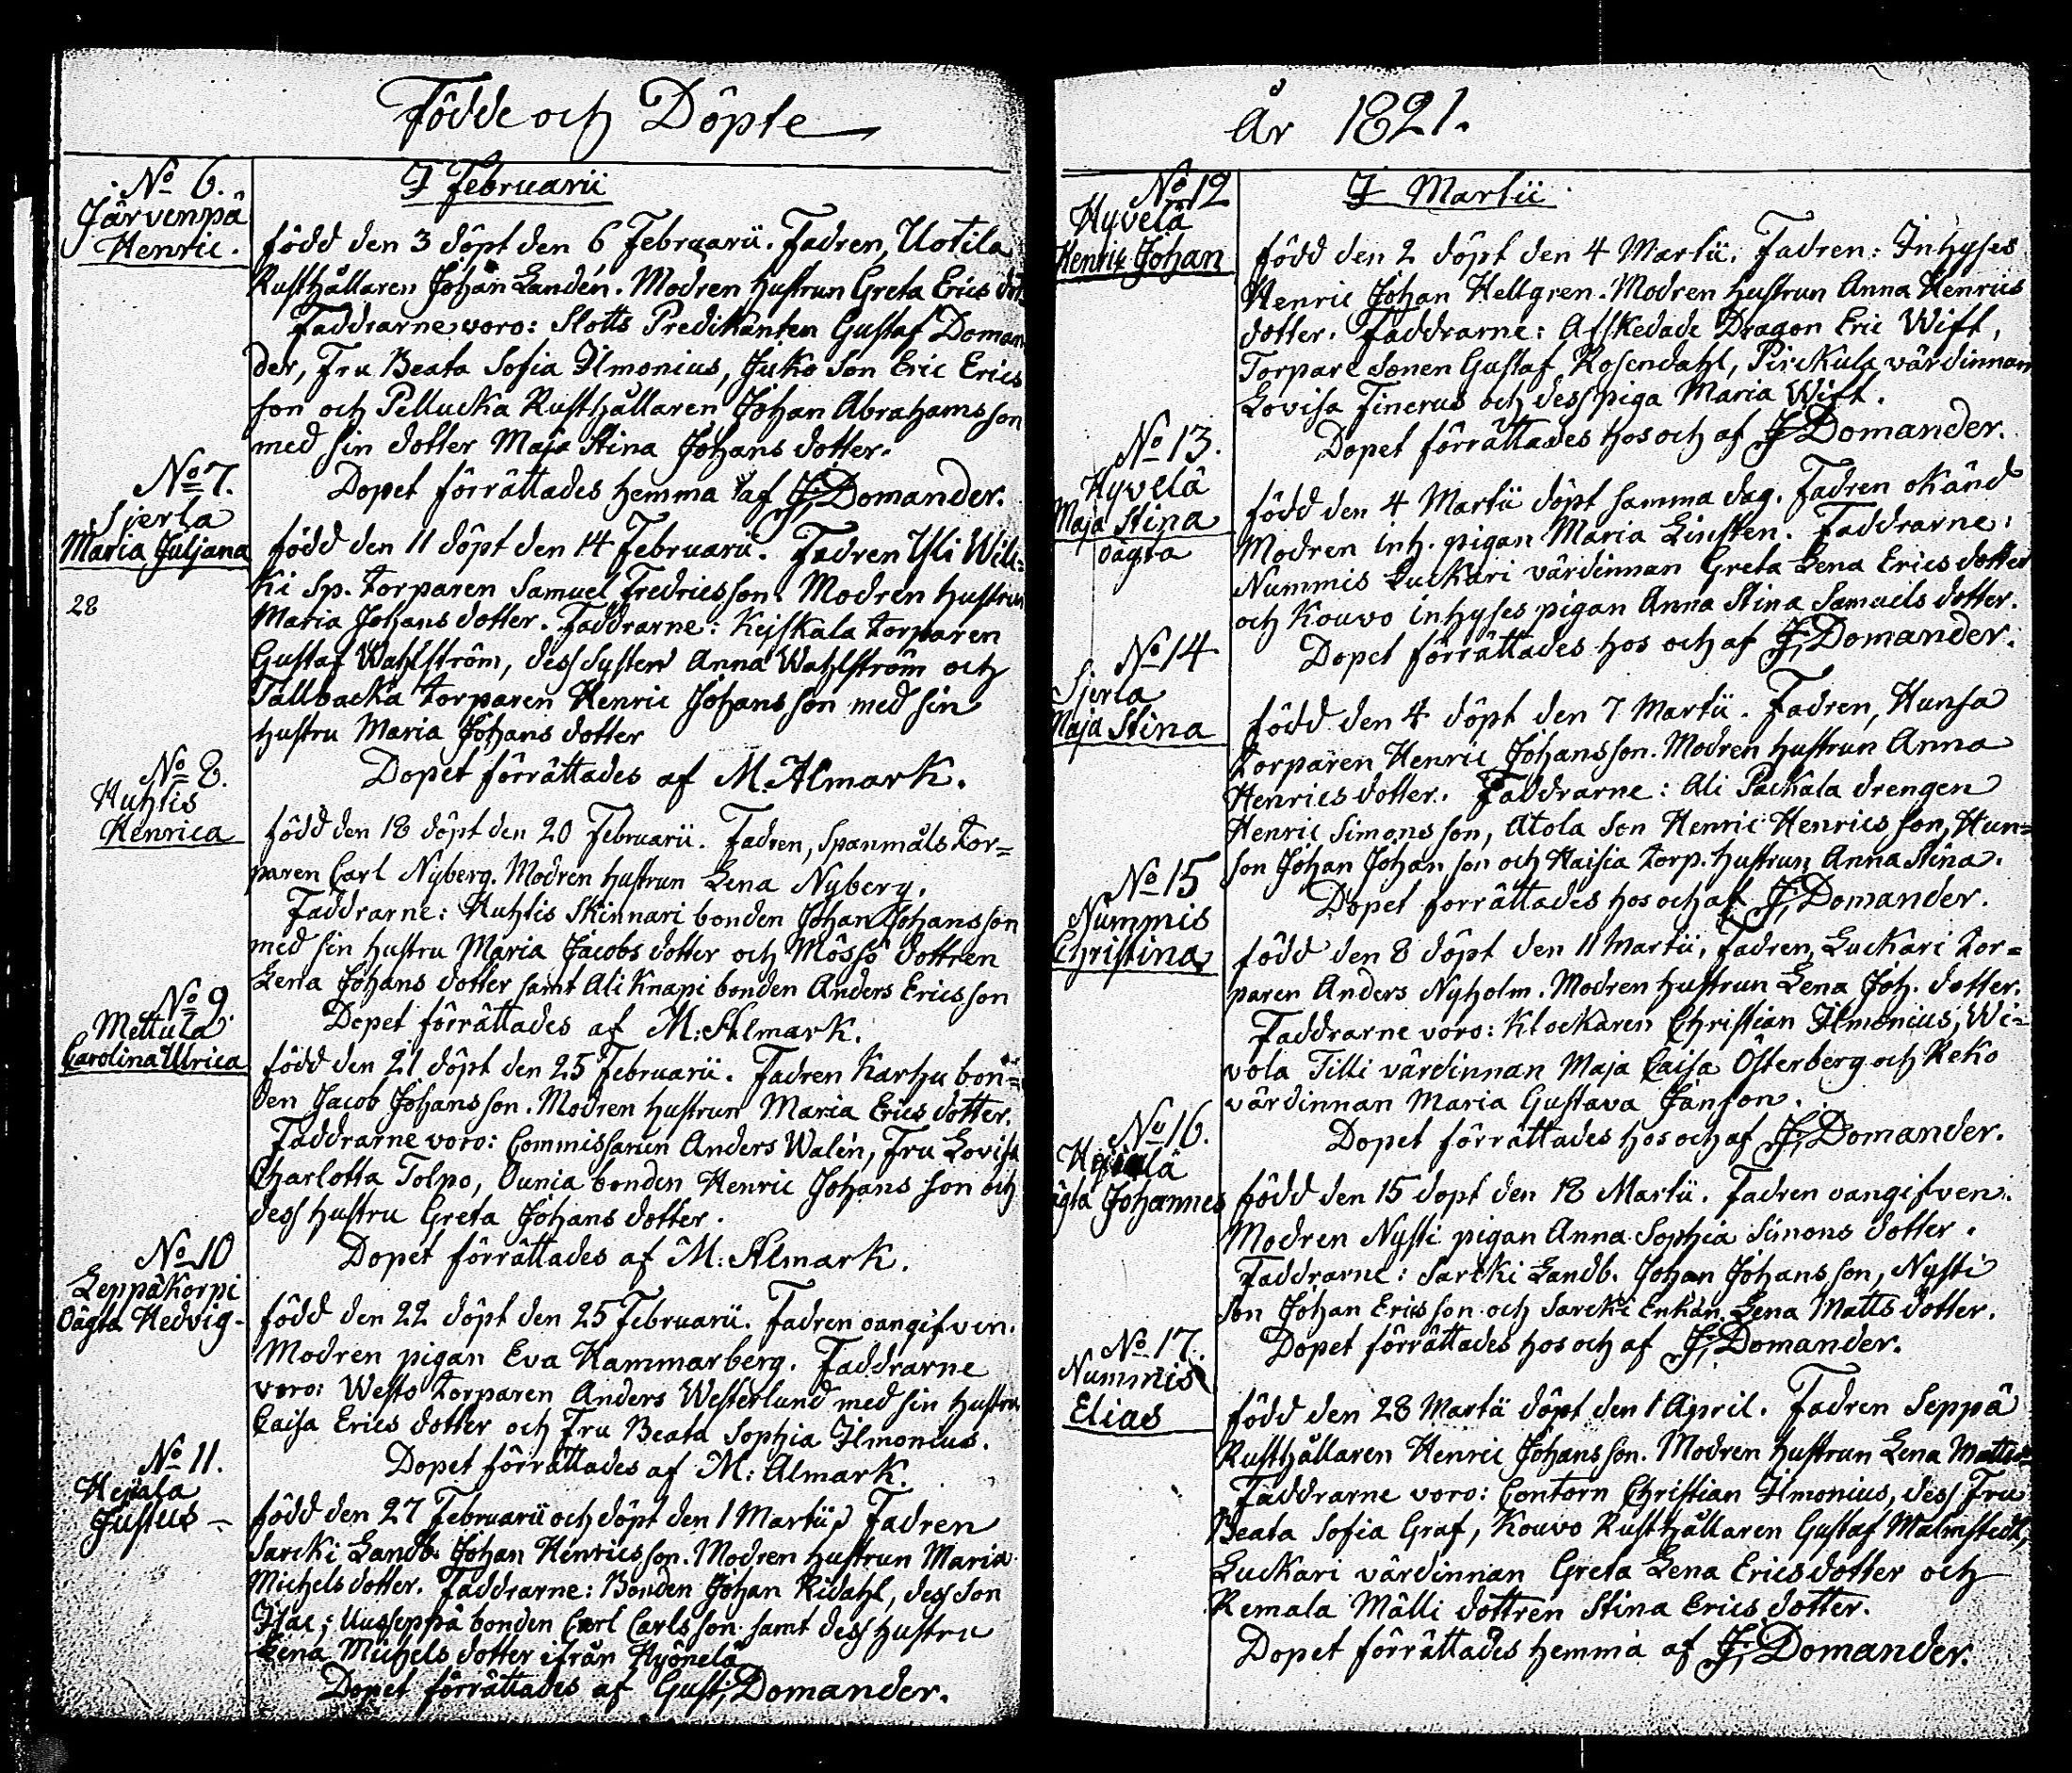 Födde och Döpte
No 6.
Järvenpä
Henric.
I Februarii
född den 3 döpt den 6 Februarii. Fadren, Uotila
Rusthållaren Johan Landén. Modren hustrun Greta Erics dot
Faddrarne voro: Slotts Predikanten Gustaf Doman
der, Fru Beata Sofia Ilmonius, Juko Son Eric Erics
son och Pellucka Rusthållaren Johan Abrahams son
med sin dotter Maja Stina Johans dotter.
Dopet förrättades hemma af J. Domander.
No 7.
Sjerla
Maria Juljana
28
född den 11 döpt den 14 Februarii. Fadren Yli Wili=
ki Sp. torparen Samuel Fredricsson. Modren hustrun
Maria Johans dotter. Faddrarne: Kejskala torparen
Gustaf Wahlström, dess Syster Anna Wahlström och
Tallbacka torparen Henric Johans son med sin
hustru Maria Johans dotter
Dopet förrättades af M. Almark.
No 8.
Huhtis
Henrica
född den 18 döpt den 20 Februarii. Fadren, Spanmåls tor=
paren Carl Nyberg. Modren hustrun Lena Nyberg.
Faddrarne: Huhtis Skinnari bonden Johan Johansson
med sin hustru Maria Jacobs dotter och Mössö dottren
Lena Johans dotter samt Ali Knapi bonden Anders Ericsson
Dopet förrättades af M: Almark.
No 9.
Mettula
Carolina Ulrica
född den 21 döpt den 25 Februarii. Fadren Karhu bon=
den Jacob Johans son. Modren hustrun Maria Erics dotter.
Faddrarne voro: Commissarien Anders Walén, Fru Lovisa
Charlotta Tolpo, Ounia bonden Henric Johans son och
dess hustru Greta Johans dotter.
Dopet förrättades af M: Almark.
No 10
Leppäkorpi
Oägta Hedvig-
född den 22 döpt den 25 Februarii. Fadren oangifven.
Modren pigan Eva Hammarberg. Faddrarne
voro: Westo torparen Anders Westerlund med sin hustru
Caisa Erics dotter och Fru Beata Sophia Ilmonius.
Dopet förrättades af M: Almark.
No 11.
Hejala
Justus -
född den 27 Februarii och döpt den 1 Martii, Fadren
Sarcki Landb. Johan Henricsson. Modren hustrun Maria
Michels dotter. Faddrarne: Bonden Johan Ridahl, dess Son
Isac; Uusseppä bonden Carl Carls son samt dess hustru
Lena Michels dotter ifrån Hyönelä
Dopet förrättades af Gust: Domander.
År 1821.
No 12
Hyvelä
Henric Johan
I Martii
född den 2 döpt den 4 Martii. Fadren: Inhyses
Henric Johan Hellgren. Modren hustrun Anna Henrics
dotter. Faddrarne: Afskedade Dragon Eric Wift,
Torpare Sonen Gustaf Rosendahl, Pirckula värdinnan
Lovisa Finerus och dess piga Maria Wift.
Dopet förrättades hos och af J. Domander.
No 13.
Hyvelä
Maja Stina
oägta
född den 4 Martii döpt samma dag. Fadren okänd
Modren inh. pigan Maria Linsten. Faddrarne:
Nummis Luckari värdinnan Greta Lena Erics dotter
och Kouvo inhyses pigan Anna Stina Samuels dotter.
Dopet förrättades hos och af J. Domander.
No 14
Sjerla
Maja Stina
född den 4 döpt den 7 Martii. Fadren, Hunsa
torparen Henric Johansson. Modren hustrun Anna
Henrics dotter. Faddrarne: Ali Packala drengen
Henric Simons son, Atola Son Henric Henrics son, Hun=
son Johan Johan son och Haisia torp. hustrun Anna Stina.
Dopet förrättades hos och af J. Domander.
No 15
Nummis
Christina
född den 8 döpt den 11 Martii, Fadren, Luckari tor=
paren Anders Nyholm. Modren hustrun Lena Joh. dotter.
Faddrarne voro: Klockaren Christian Ilmonius, Wi=
vola Tilli värdinnan Maja Caisa Österberg och Reko
värdinnan Maria Gustava Janson.
Dopet förrättades hos och af J. Domander.
No 16.
ägta Johannes
född den 15 döpt den 18 Martii. Fadren oangifven.
Modren Nysti pigan Anna Sophia Simons dotter.
Faddrarne: Sarcki Landb. Johan Johans son, Nysti
Son Johan Erics son och Sarcki Enkan Lena Matts dotter.
Dopet förrättades hos och af J. Domander.
No 17.
Nummis
Elias
född den 28 Martii döpt den 1 April. Fadren Seppä
Rusthållaren Henric Johansson. Modren hustrun Lena Matts=
Faddrarne voro: Contorn Christian Ilmonius, dess Fru
Beata Sofia Graf, Kouvo Rusthållaren Gustaf Malmstedt,
Luckari värdinnan Greta Lena Erics dotter och
Remala Mälli dottren Stina Erics dotter.
Dopet förrättades hemma af J. Domander.